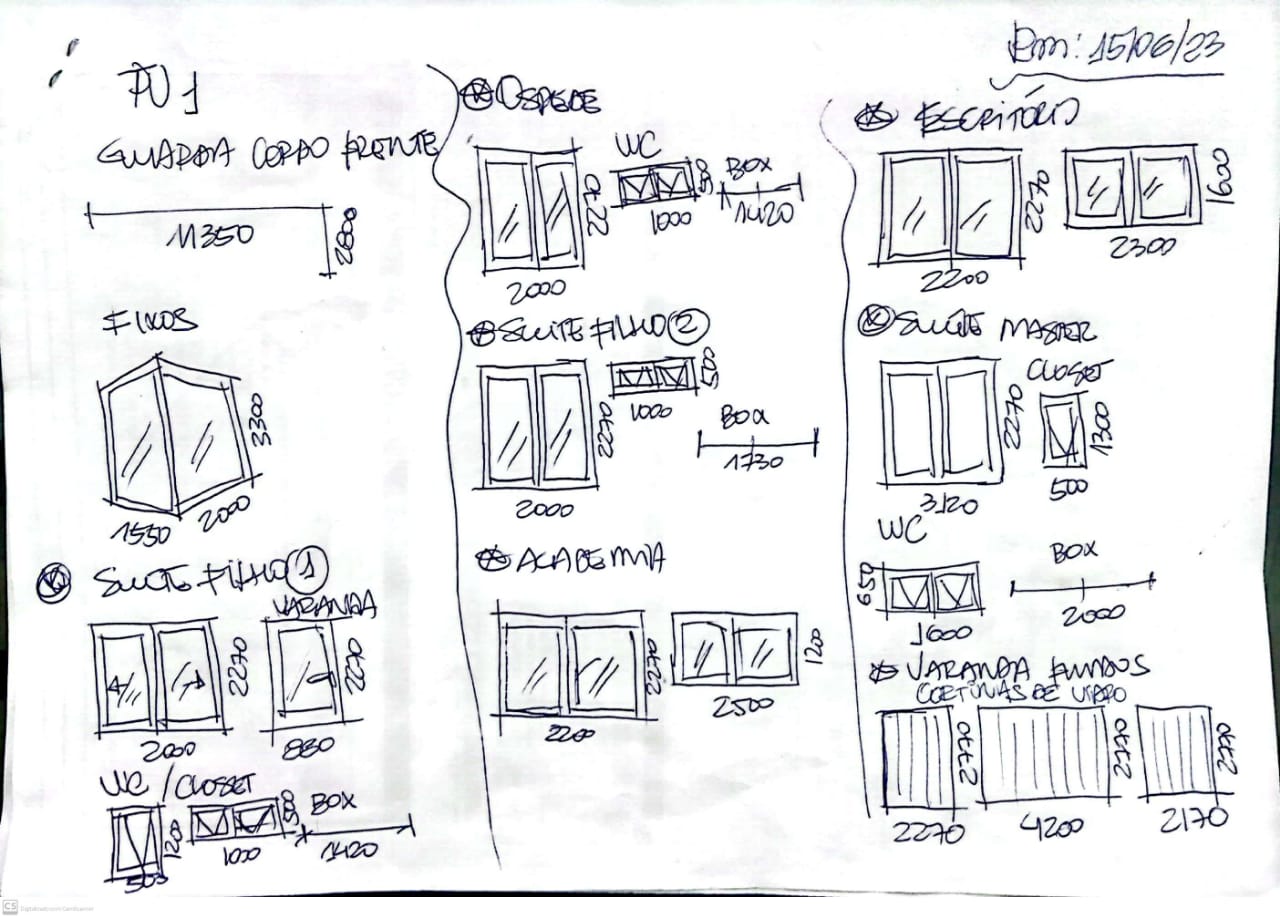 Em: 15/06/23
PV 1
GUARDA CORPO FRENTE
11350
2800
FIXOS
3300
1550
2000
SUITE FILHO 1
VARANDA
2270
2270
2000
880
WC / CLOSET
1200
500
BOX
503
1000
1420
OSPEDE
WC
BOX
2270
500
1000
1420
2000
SUITE FILHO 2
500
1000
2270
BOX
1730
2000
ACADEMIA
2270
1200
2200
2500
ESCRITÓRIO
2270
1600
2200
2300
SUITE MASTER
CLOSET
2270
1300
3120
500
WC
BOX
650
1600
2000
VARANDA FUNDOS
CORTINAS DE VIDRO
2770
2770
2770
2270
4200
2170
CS Digitalizado com CamScanner